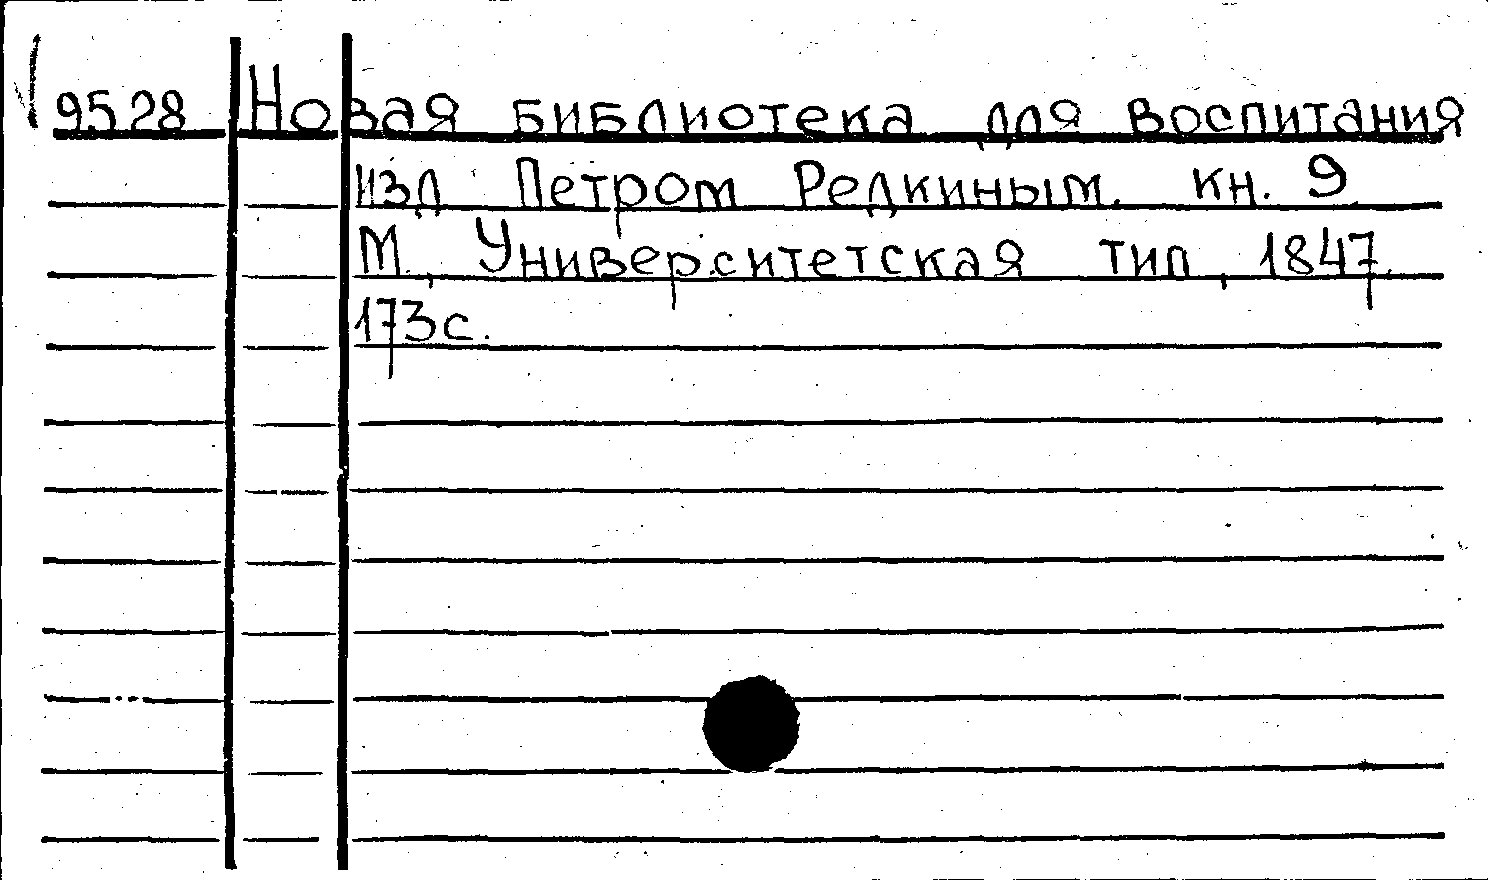 9528 Новая библиотека для воспитания
изд Петром Редкиным. кн. 9
М., Университетская тип, 1847.
173с.